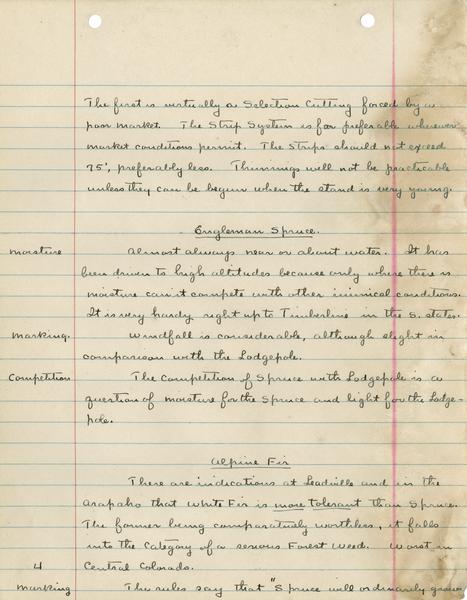 The first is virtually a Selection Cutting forced by a
poor market. The Strip System is far preferable wherever
market conditions permit. The Strips should not exceed
75', preferably less. Thinnings will not be practicable
unless they can be begun when the stand is very young.
Engleman Spruce.
Moisture Almost always near or about water. It has
been driven to high altitudes because only where there is
moisture can it compete with other inimical conditions.
It is very hardy right up to Timberline in the S. states.
Marking. Windfall is considerable, although slight in
comparison with the Lodgepole.
Competition The Competition of Spruce with Lodgepole is a
question of moisture for the Spruce and light for the Lodge-
pole.
Alpine Fir
There are indications at Leadville and in the
Arapaho that White Fir is more tolerant than Spruce.
The former being comparatively worthless, it falls
into the Category of a serious Forest Weed. Worst in
4 Central Colorado.
Marking The rules say that "Spruce will ordinarily grow